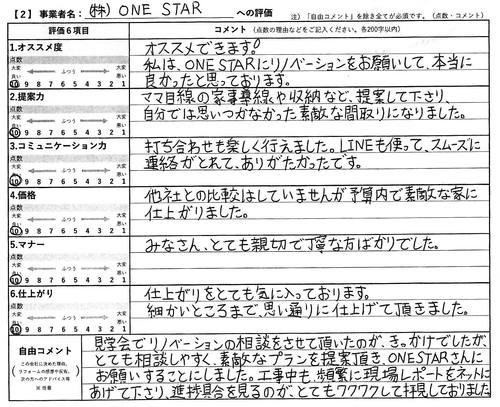 【2】事業者名：(株) ONE STAR への評価 注）「自由コメント」を除き全てが必須です。（点数・コメント）
評価6項目 コメント（点数の理由などをご記入ください。各200字以内）
1.オススメ度
点数
大変良い ふつう 大変悪い
10 9 8 7 6 5 4 3 2 1
オススメできます!
私は、ONE STARにリノベーションをお願いして、本当に
良かったと思っております。
2.提案力
点数
大変良い ふつう 大変悪い
10 9 8 7 6 5 4 3 2 1
ママ目線の家事導線や収納など、提案して下さり、
自分では思いつかなかった素敵な間取りになりました。
3.コミュニケーション力
点数
大変良い ふつう 大変悪い
10 9 8 7 6 5 4 3 2 1
打ち合わせも楽しく行えました。LINEも使って、スムーズに
連絡がとれて、ありがたかったです。
4.価格
点数
大変良い ふつう 大変悪い
10 9 8 7 6 5 4 3 2 1
他社との比較はしていませんが予算内で素敵な家に
仕上がりました。
5.マナー
点数
大変良い ふつう 大変悪い
10 9 8 7 6 5 4 3 2 1
みなさん、とても親切で丁寧な方ばかりでした。
6.仕上がり
点数
大変良い ふつう 大変悪い
10 9 8 7 6 5 4 3 2 1
仕上がりをとても気に入っております。
細かいところまで、思い通りに仕上げて頂きました。
自由コメント
（この会社に決めた理由、
リフォームの感想や反省、
次の方へのアドバイス等）
※任意
見学会でリノベーションの相談をさせて頂いたのが、き。かけでしたが、
とても相談しやすく、素敵なプランを提案頂き、ONE STARさんに
お願いすることにしました。工事中も、頻繁に現場レポートをネットに
あげて下さり、進捗具合を見るのが、とてもワクワクして拝見しておりました